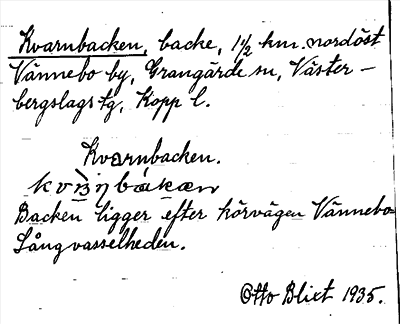 Kvarnbacken, backe, 1½ km. nordöst
Vännebo by, Grangärde sn, Väster-
bergslags tg, Kopp l.
Kvarnbacken.
Backen ligger efter körvägen Vännebo-
Långvasselheden.
Otto Blixt 1935.